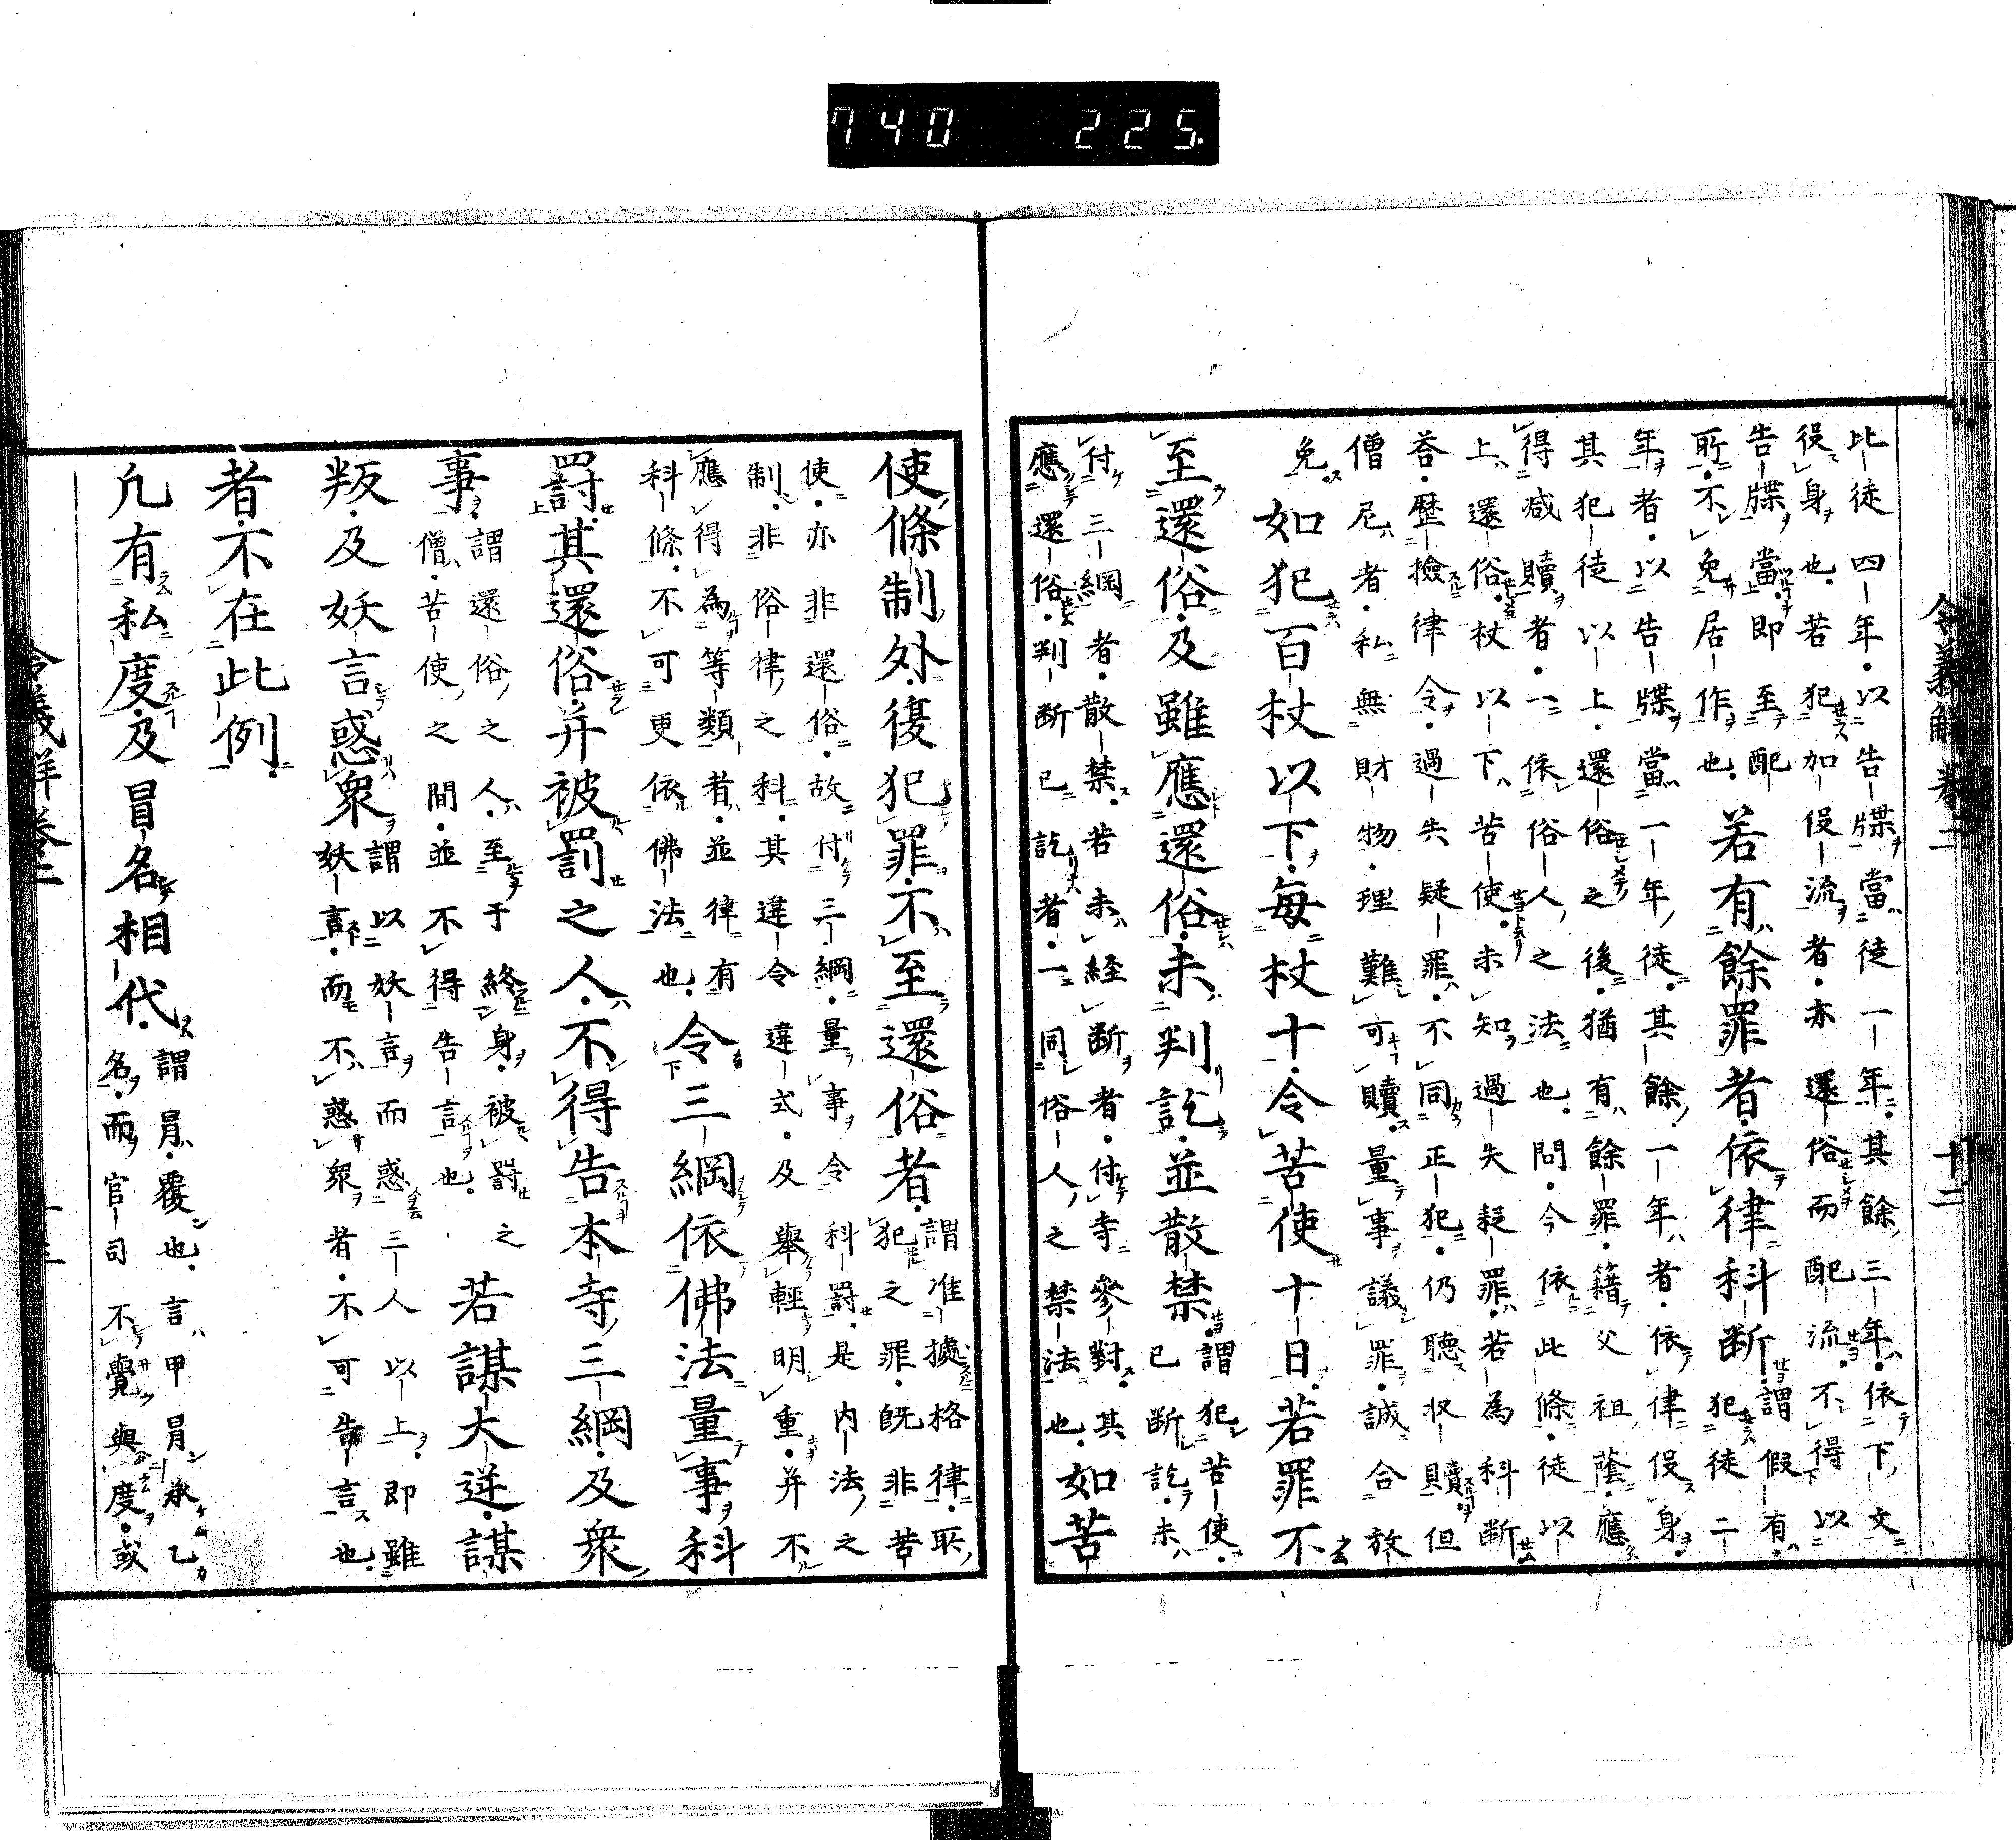 740 225
令義解 卷二 十二
比徒四年以告牒當徒一年其餘三年依下文
役身也若犯加役流者亦還俗而配流不得以
告牒當即至配所不免居作也
若有餘罪者依律科断
謂假有犯徒二
年者以告牒當一年徒其餘一年者依律役身
其犯徒以上還俗之後猶有餘罪籍父祖蔭應
得减贖者一依俗人之法也問今依此條徒以
上還俗杖以下苦使未知過失殺罪若為科断
荅歴撿律令過失疑罪不同正犯仍聴収贖但
僧尼者私無財物理難可贖量事議罪誠合放
免
如犯百杖以下毎杖十令苦使十日若罪不
至還俗及雖應還俗未判訖並散禁
謂犯苦使已断訖未
付三綱者散禁若未経断者付寺參對其
應還俗判断已訖者一同俗人之禁法也
如苦
使條制外復犯罪不至還俗者
謂准據格律耻
犯之罪既非苦
使亦非還俗故付三綱量事令科罸是内法之
制非俗律之科其違令違式及舉輕明重并不
應得為等類者並律有
科條不可更依佛法也
令三綱依佛法量事科
罸其還俗并被罰之人不得告本寺三綱及衆
事
謂還俗之人至于終身被罸之
僧苦使之間並不得告言也
若謀大逆謀
叛及妖言惑衆
謂以妖言而惑三人以上即雖
妖言而不惑衆者不可告言也
者不在此例
凢有私度及冒名相代
謂冐覆也言甲冐承乙
名而官司不覺與度或
令義解卷二